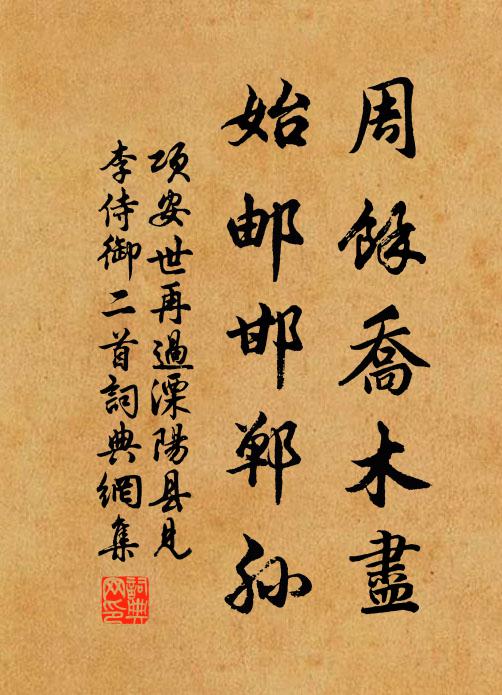 周餘喬木盡
始邮邯郸孙
項安世再過溧陽县见
李侍御二首詞典網集
詞典
网印